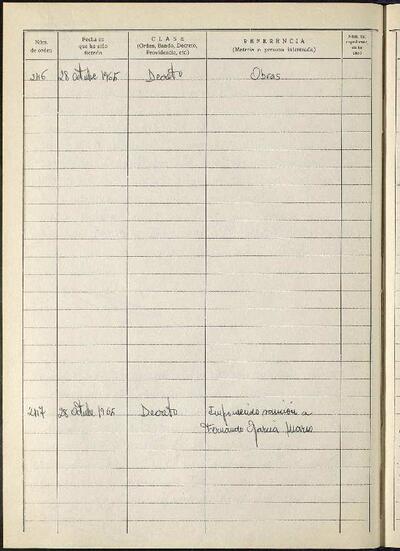 Núm.
de orden
Fecha en
que ha sido
dictada
CLASE
(Orden, Bando, Decreto,
Providencia, etc)
REFERENCIA
(Materia o persona interesada)
Núm. de
246 28 octubre 1965 Decreto Obras
247 28 octubre 1965 Decreto Imponiendo sanción a
Fernando García